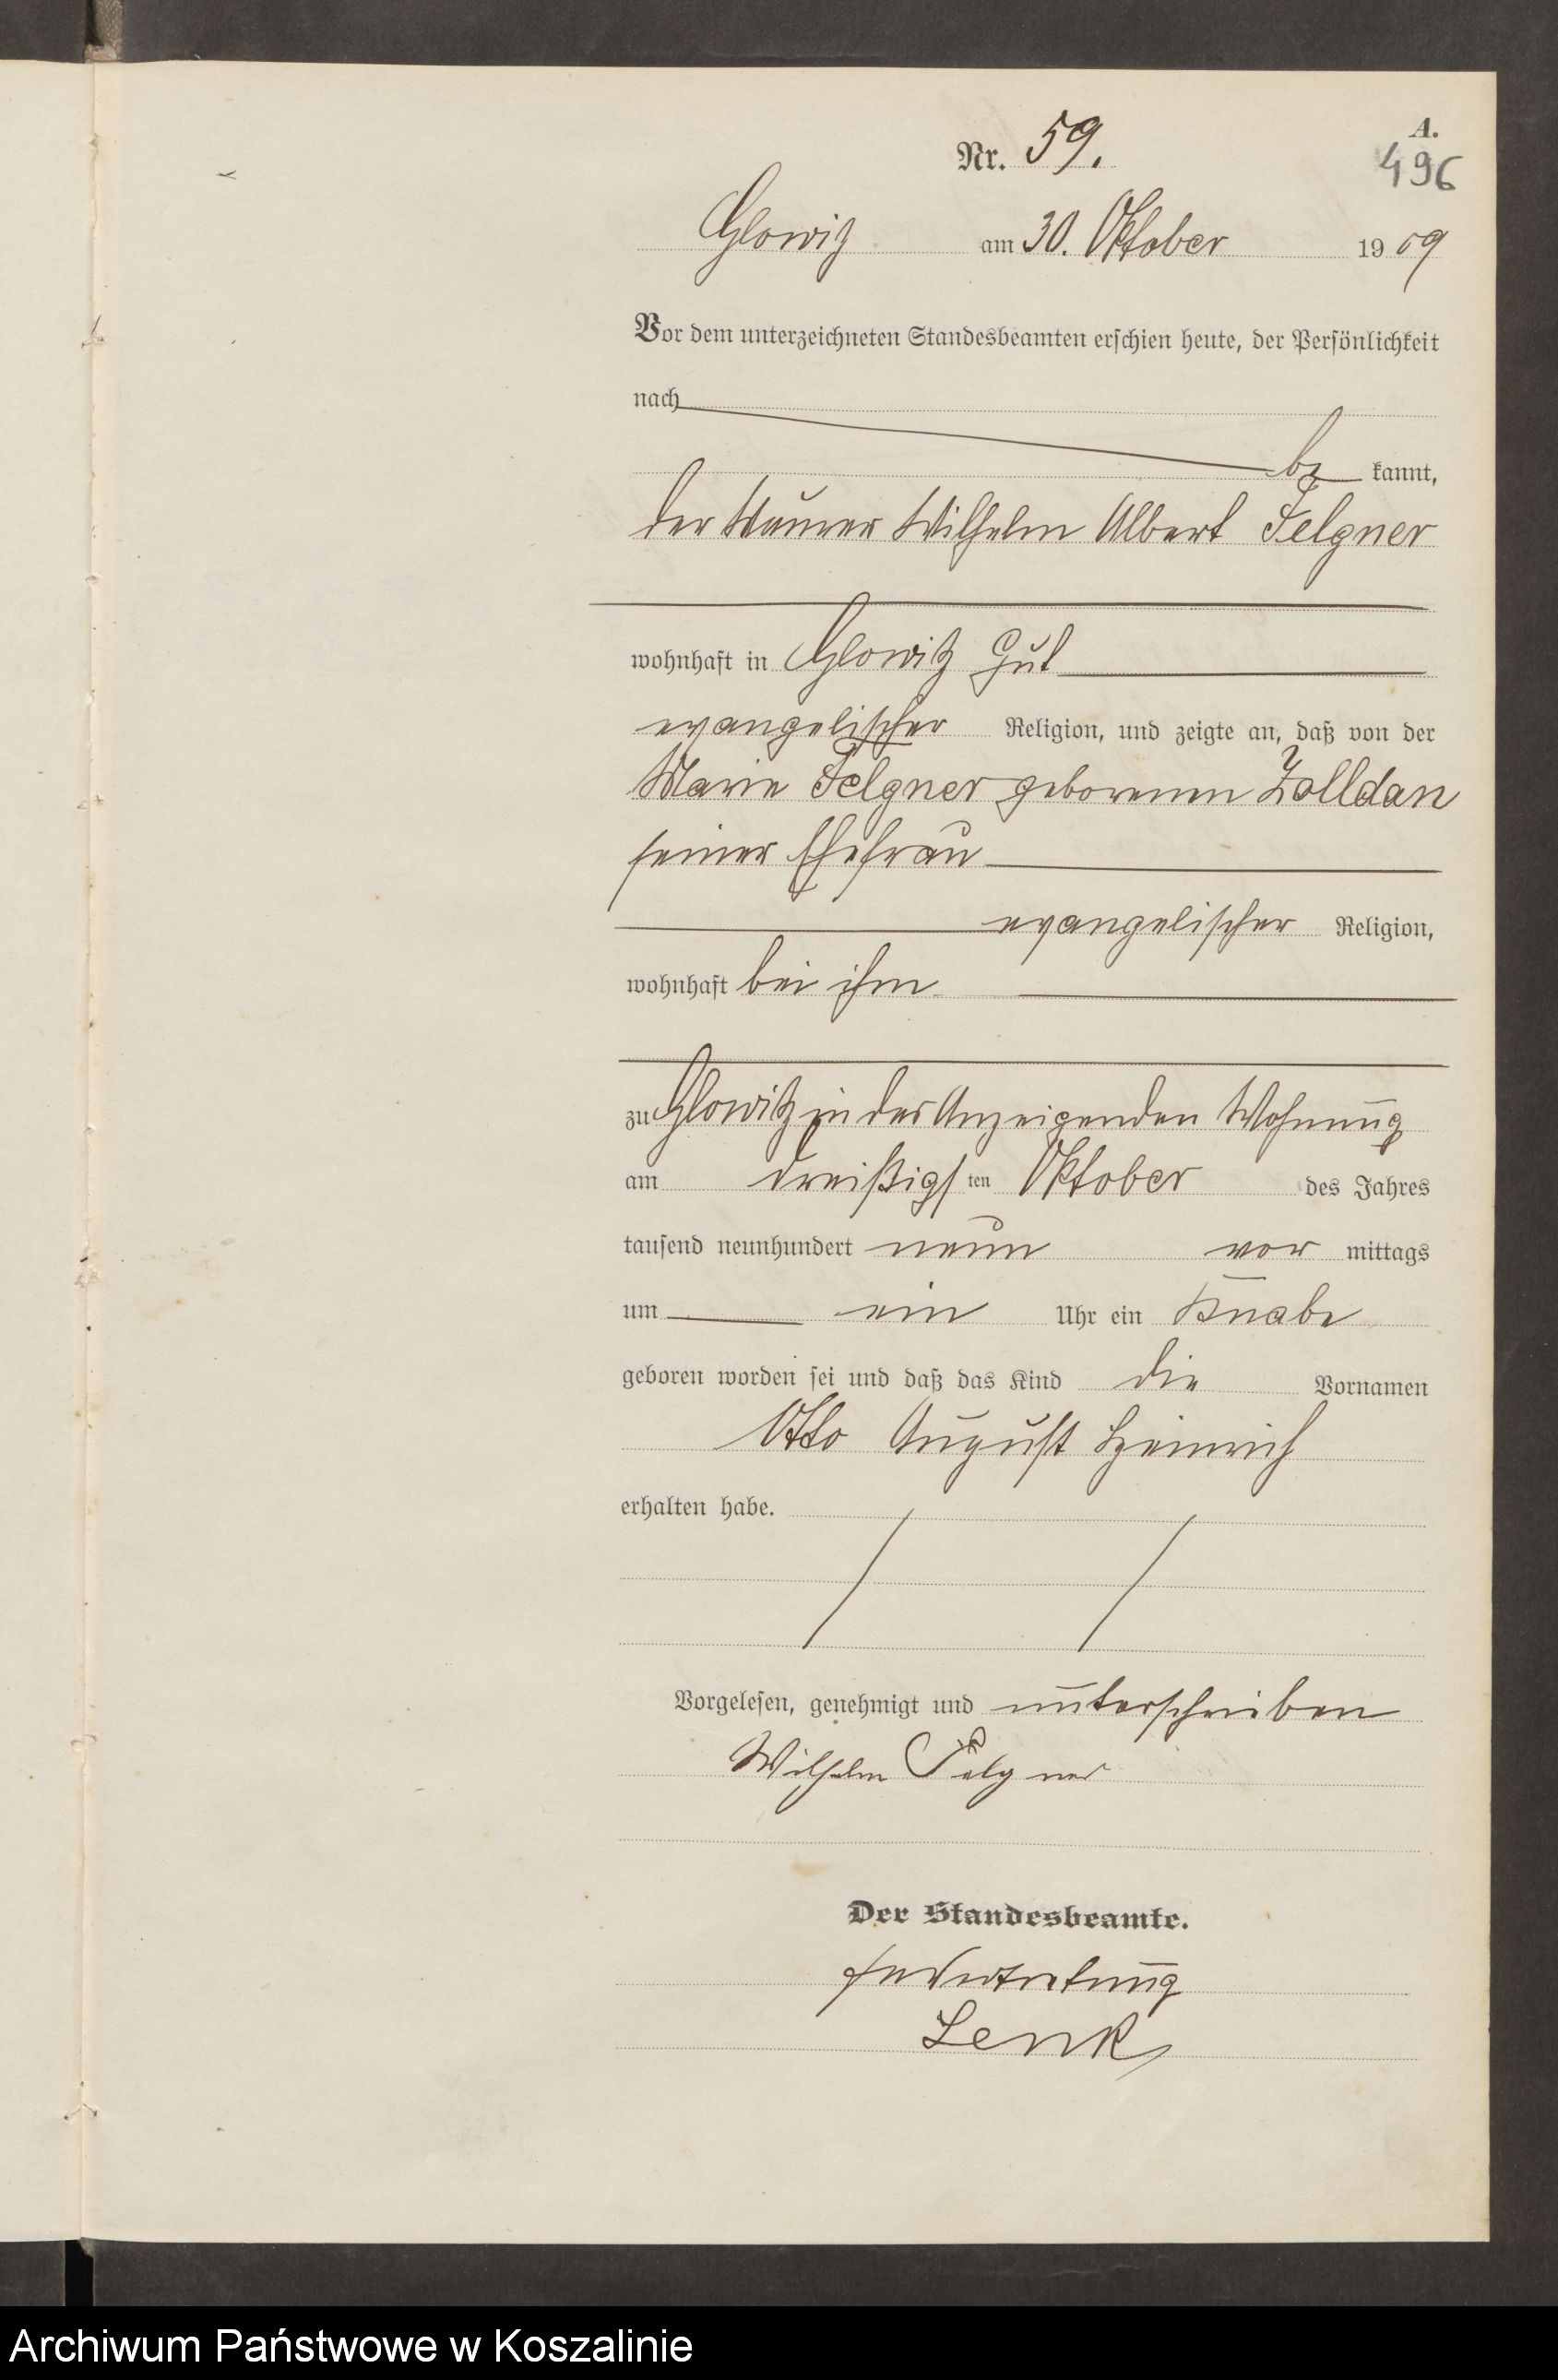 A.
Nr. 59.
496
Glowitz am 30. Oktober 1909
Vor dem unterzeichneten Standesbeamten erschien heute, der Persönlichkeit
nach
be kannt,
der Maurer Wilhelm Albert Felgner
wohnhaft in Glowitz Gut
evangelischer Religion, und zeigte an, daß von der
Marie Felgner geborenen Zolldan
seiner Ehefrau
evangelischer Religion,
wohnhaft bei ihm
zu Glowitz in des Anzeigenden Wohnung
am dreißigsten Oktober des Jahres
tausend neunhundert neun vor mittags
um ein Uhr ein Knabe
geboren worden sei und daß das Kind die Vornamen
Otto August Heinrich
erhalten habe.
Vorgelesen, genehmigt und unterschrieben
Wilhelm Felgner
Der Standesbeamte.
In Vertretung
Lenk
Archiwum Państwowe w Koszalinie